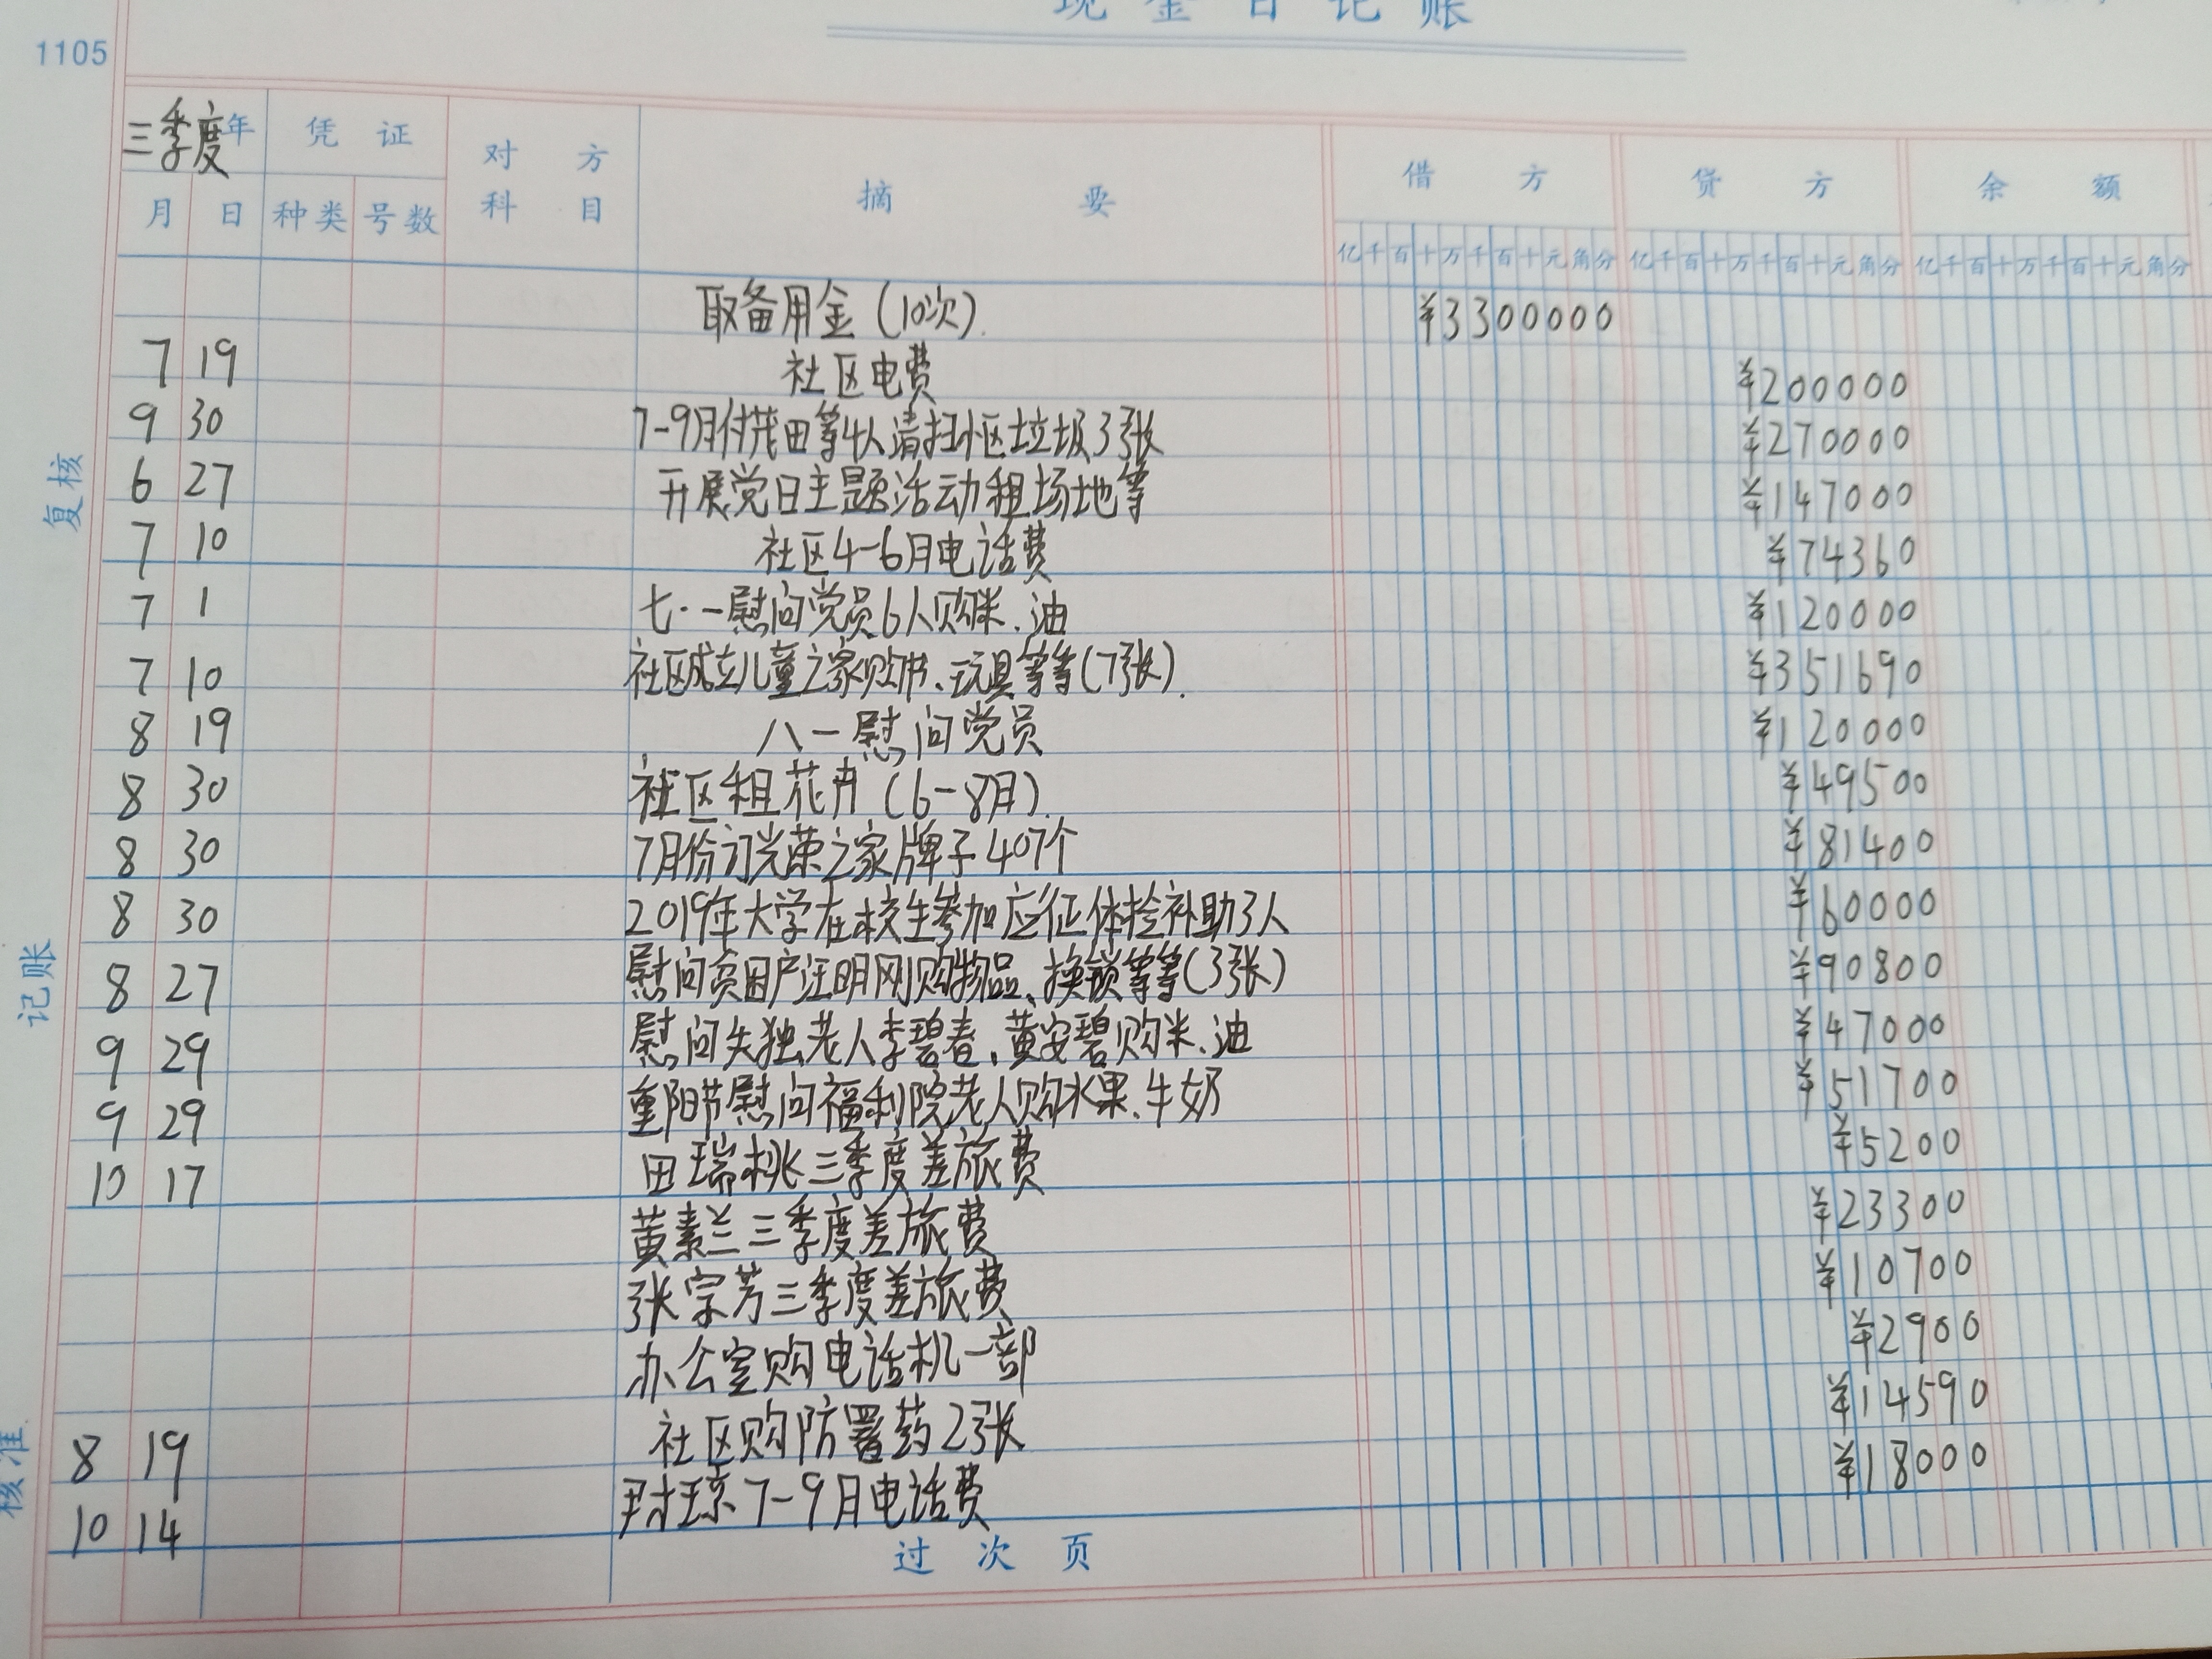 现金日记账
1105
三季度年 凭证 对方 摘要 借方 贷方 余额
月 日 种类 号数 科目 亿千百十万千百十元角分 亿千百十万千百十元角分 亿千百十万千百十元角分
取备用金(10次). ¥3300000
7 19 社区电费 ¥200000
9 30 7-9月付茂田等4人清扫小区垃圾3张 ¥270000
6 27 开展党日主题活动租场地等 ¥147000
7 10 社区4-6月电话费 ¥74360
7 1 七·一慰问党员6人购米.油 ¥120000
7 10 社区成立儿童之家购书、玩具等等(7张). ¥351690
8 19 八一慰问党员 ¥120000
8 30 社区租花卉(6-8月). ¥49500
8 30 7月份订光荣之家牌子407个 ¥81400
8 30 2019年大学在校生参加应征体检补助3人 ¥60000
8 27 慰问贫困户汪明刚购物品、换锁等等(3张) ¥90800
9 29 慰问失独老人李碧春、黄安碧购米.油 ¥47000
9 29 重阳节慰问福利院老人购水果.牛奶 ¥51700
10 17 田瑞桃三季度差旅费 ¥5200
黄素兰三季度差旅费 ¥23300
张宗芳三季度差旅费 ¥10700
办公室购电话机一部 ¥2900
8 19 社区购防署药2张 ¥14590
10 14 7-9月电话费 ¥18000
过次页
复核
记账
核准